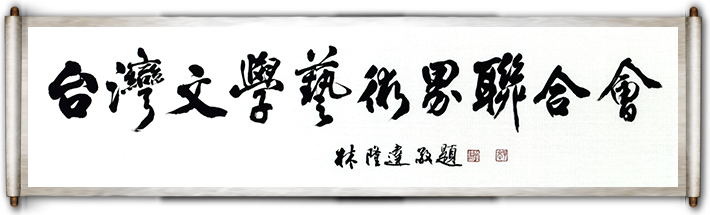 台灣文學藝術界聯合會
林隆達敬題